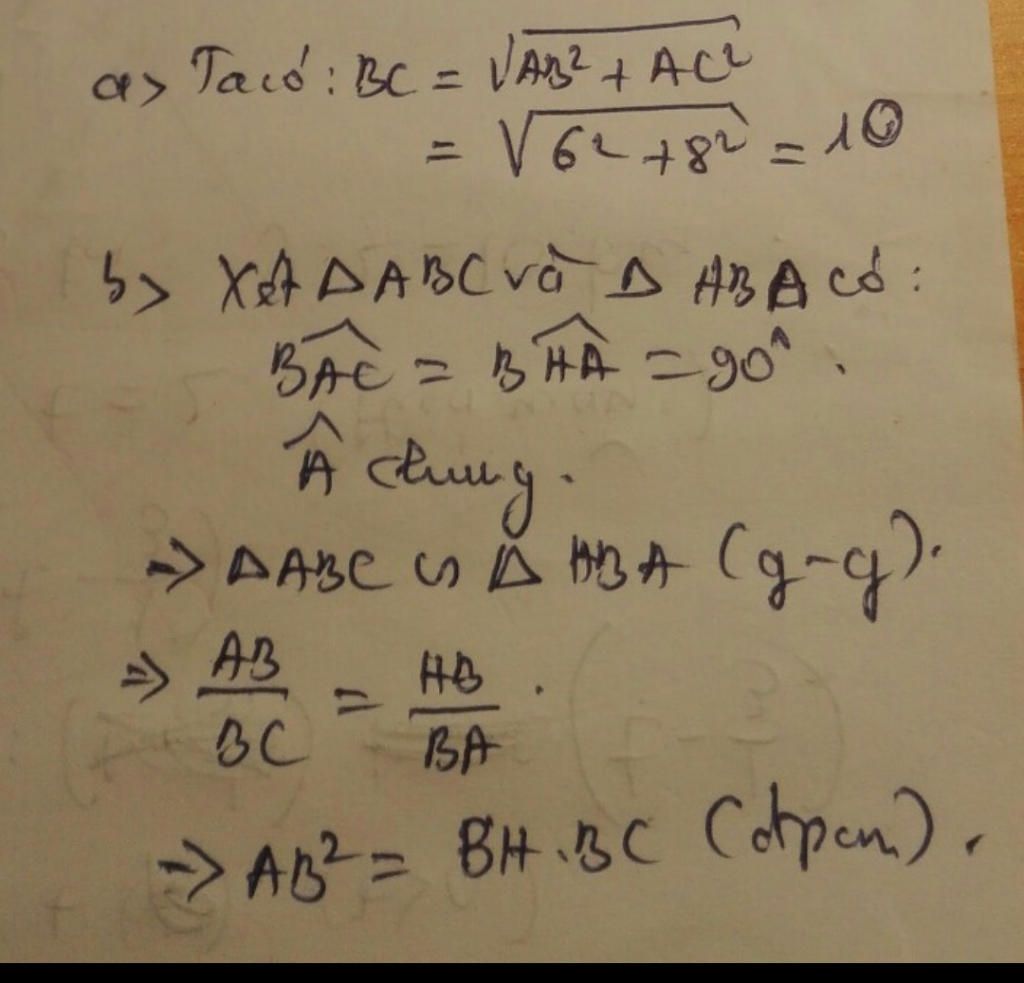 a> Ta có: BC = √(AB² + AC²)
= √(6² + 8²) = 10
b> Xét Δ ABC và Δ HBA có:
∠BAC = ∠BHA = 90°.
Â chung.
=> ΔABC ∽ Δ HBA (g-g).
=> AB/BC = HB/BA.
=> AB² = BH.BC (đpcm).